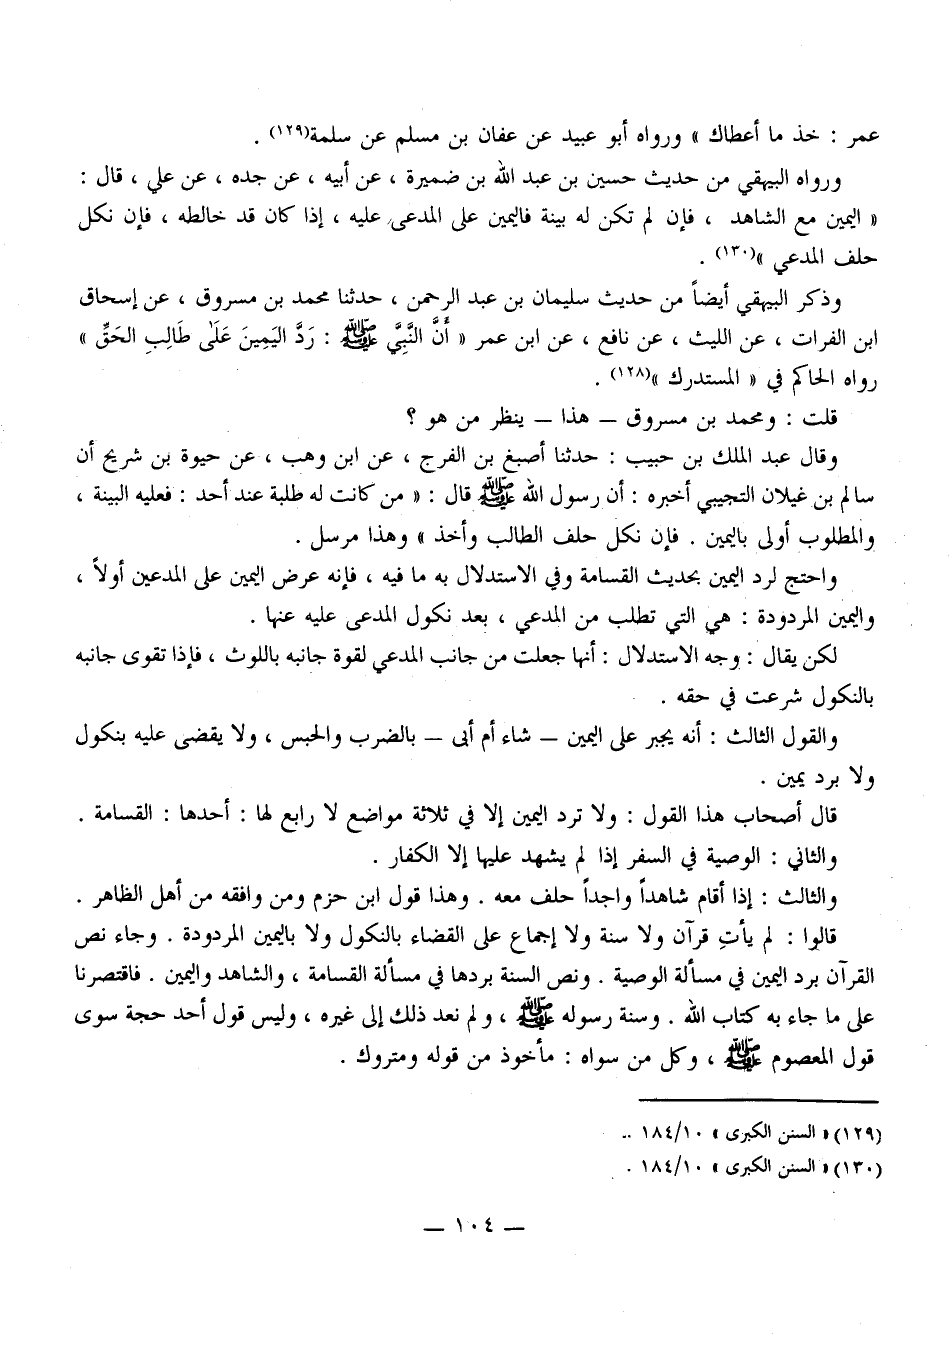 عمر : خذ ما أعطاك » ورواه أبو عبيد عن عفان بن مسلم عن سلمة(١٢٩) .
ورواه البيهقي من حديث حسين بن عبد الله بن ضميرة ، عن أبيه ، عن جده ، عن علي ، قال :
« اليمين مع الشاهد ، فإن لم تكن له بينة فاليمين على المدعى عليه ، إذا كان قد خالطه ، فإن نكل
حلف المدعي »(١٣٠) .
وذكر البيهقي أيضاً من حديث سليمان بن عبد الرحمن ، حدثنا محمد بن مسروق ، عن إسحاق
ابن الفرات ، عن الليث ، عن نافع ، عن ابن عمر « أَنَّ النَّبِيَّ ﷺ : رَدَّ اليَمِينَ عَلَىٰ طَالِبِ الحَقِّ »
رواه الحاكم في « المستدرك »(١٢٨) .
قلت : ومحمد بن مسروق — هذا — ينظر من هو ؟
وقال عبد الملك بن حبيب : حدثنا أصبغ بن الفرج ، عن ابن وهب ، عن حيوة بن شريح أن
سالم بن غيلان التجيبي أخبره : أن رسول الله ﷺ قال : « من كانت له طلبة عند أحد : فعليه البينة ،
والمطلوب أولى باليمين . فإن نكل حلف الطالب وأخذ » وهذا مرسل .
واحتج لرد اليمين بحديث القسامة وفي الاستدلال به ما فيه ، فإنه عرض اليمين على المدعين أولاً ،
واليمين المردودة : هي التي تطلب من المدعي ، بعد نكول المدعى عليه عنها .
لكن يقال : وجه الاستدلال : أنها جعلت من جانب المدعي لقوة جانبه باللوث ، فإذا تقوى جانبه
بالنكول شرعت في حقه .
والقول الثالث : أنه يجبر على اليمين — شاء أم أبى — بالضرب والحبس ، ولا يقضى عليه بنكول
ولا برد يمين .
قال أصحاب هذا القول : ولا ترد اليمين إلا في ثلاثة مواضع لا رابع لها : أحدها : القسامة .
والثاني : الوصية في السفر إذا لم يشهد عليها إلا الكفار .
والثالث : إذا أقام شاهداً واحداً حلف معه . وهذا قول ابن حزم ومن وافقه من أهل الظاهر .
قالوا : لم يأتِ قرآن ولا سنة ولا إجماع على القضاء بالنكول ولا باليمين المردودة . وجاء نص
القرآن برد اليمين في مسألة الوصية . ونص السنة بردها في مسألة القسامة ، والشاهد واليمين . فاقتصرنا
على ما جاء به كتاب الله . وسنة رسوله ﷺ ، ولم نعد ذلك إلى غيره ، وليس قول أحد حجة سوى
قول المعصوم ﷺ ، وكل من سواه : مأخوذ من قوله ومتروك .
(١٢٩) « السنن الكبرى » ١٨٤/١٠ ..
(١٣٠) « السنن الكبرى » ١٨٤/١٠ .
— ١٠٤ —